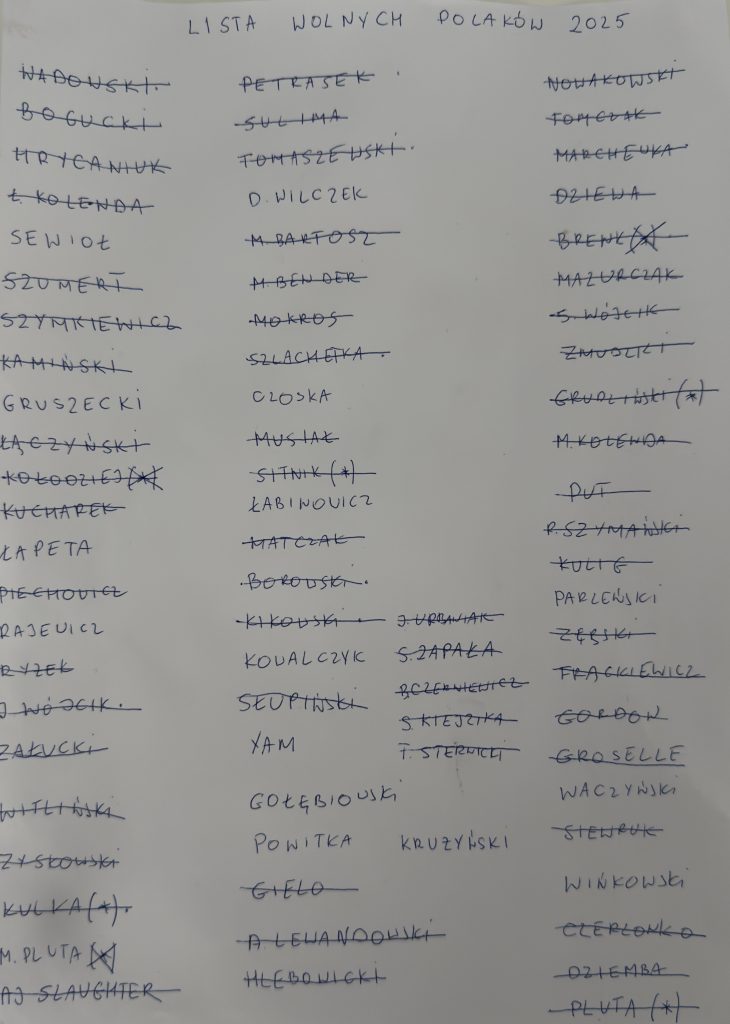 LISTA WOLNYCH POLAKÓW 2025
WADOWSKI.
BOGUCKI
HRYCANIUK
Ł. KOLENDA
SEWIOŁ
SZUMERT
SZYMKIEWICZ
KAMIŃSKI
GRUSZECKI
ŁĄCZYŃSKI
KOŁODZIEJ (*)
KUCHAREK
ŁAPETA
PIECHOWICZ
RAJEWICZ
RYŻEK
J WÓJCIK.
ZAŁUCKI
WITLIŃSKI
ZYSKOWSKI
KULKA (*).
M. PLUTA (*)
AJ SLAUGHTER
PETRASEK
SULIMA
TOMASZEWSKI.
D. WILCZEK
M. BARTOSZ
M. BENDER
MOKROS
SZLACHETKA.
CZOSKA
MUSIAŁ
SITNIK (*)
ŁABINOWICZ
MATCZAK
BOROWSKI.
KIKOWSKI.
KOWALCZYK
SŁUPIŃSKI
YAM
GOŁĘBIOWSKI
POWITKA
GIELO
A. LEWANDOWSKI
HLEBOWICKI
J. URBANIAK
S. ZAPAŁA
B. CZERNIEWICZ
S. KIEJZIKA
F. STERNICKI
KRUŻYŃSKI
NOWAKOWSKI
TOMCZAK
MARCHEWKA
DZIEWA
BRENK (*)
MAZURCZAK
S. WÓJCIK
ZMUDZKI
GRUDZIŃSKI (*)
M. KOLENDA
PUT
R. SZYMAŃSKI
KULIG
PARZEŃSKI
ZĘBSKI
FRĄCKIEWICZ
GORDON
GROSELLE
WACZYŃSKI
SIEWRUK
WIŃKOWSKI
CZERLONKO
DZIEMBA
PLUTA (*)